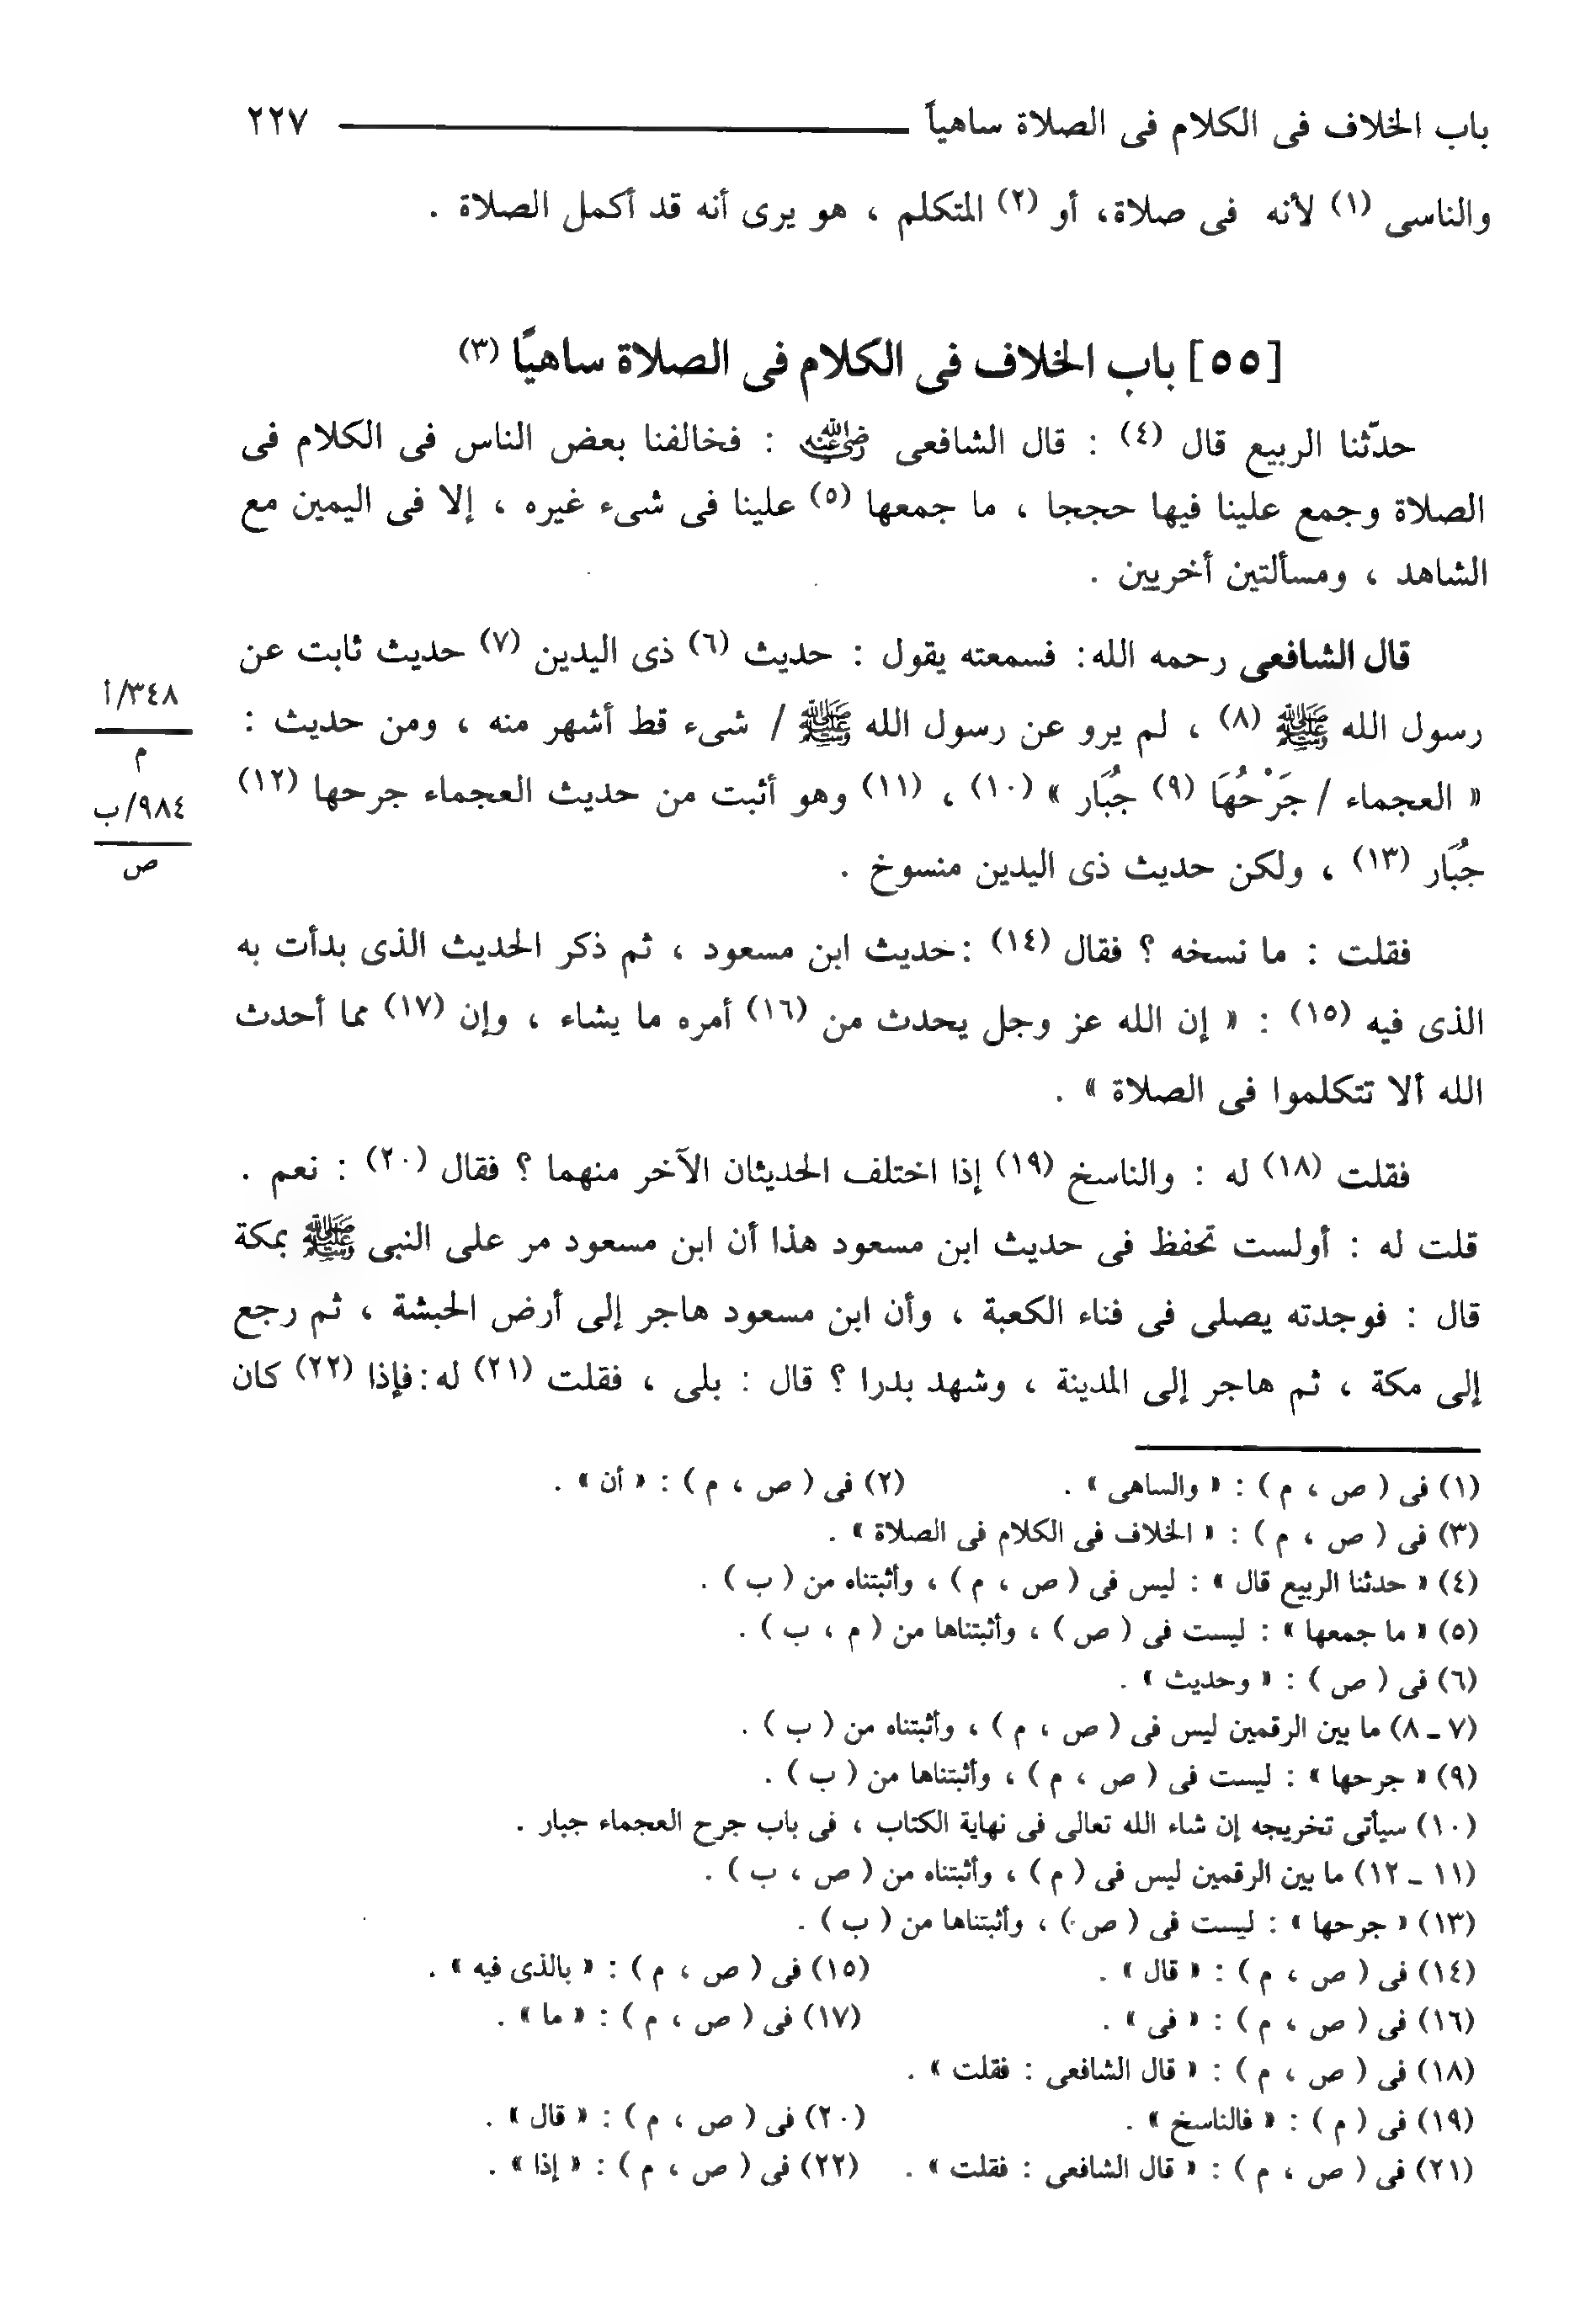 باب الخلاف فى الكلام فى الصلاة ساهياً ٢٢٧
والناسى (١) لأنه فى صلاة، أو (٢) المتكلم ، هو يرى أنه قد أكمل الصلاة .
[٥٥] باب الخلاف فى الكلام فى الصلاة ساهيًا (٣)
حدّثنا الربيع قال (٤) : قال الشافعى رضي الله عنه : فخالفنا بعض الناس فى الكلام فى
الصلاة وجمع علينا فيها حججا ، ما جمعها (٥) علينا فى شىء غيره ، إلا فى اليمين مع
الشاهد ، ومسألتين أخريين .
قال الشافعى رحمه الله: فسمعته يقول : حديث (٦) ذى اليدين (٧) حديث ثابت عن
رسول الله ﷺ (٨) ، لم يرو عن رسول الله ﷺ / شىء قط أشهر منه ، ومن حديث :
« العجماء / جَرْحُهَا (٩) جُبَار » (١٠) ، (١١) وهو أثبت من حديث العجماء جرحها (١٢)
جُبَار (١٣) ، ولكن حديث ذى اليدين منسوخ .
٣٤٨/أ
م
٩٨٤/ب
ص
فقلت : ما نسخه ؟ فقال (١٤) : حديث ابن مسعود ، ثم ذكر الحديث الذى بدأت به
الذى فيه (١٥) : « إن الله عز وجل يحدث من (١٦) أمره ما يشاء ، وإن (١٧) مما أحدث
الله ألا تتكلموا فى الصلاة » .
فقلت (١٨) له : والناسخ (١٩) إذا اختلف الحديثان الآخر منهما ؟ فقال (٢٠) : نعم .
قلت له : أولست تحفظ فى حديث ابن مسعود هذا أن ابن مسعود مر على النبى ﷺ بمكة
قال : فوجدته يصلى فى فناء الكعبة ، وأن ابن مسعود هاجر إلى أرض الحبشة ، ثم رجع
إلى مكة ، ثم هاجر إلى المدينة ، وشهد بدرا ؟ قال : بلى ، فقلت (٢١) له : فإذا (٢٢) كان
(١) فى ( ص ، م ) : « والساهى » . (٢) فى ( ص ، م ) : « أن » .
(٣) فى ( ص ، م ) : « الخلاف فى الكلام فى الصلاة » .
(٤) « حدثنا الربيع قال » : ليس فى ( ص ، م ) ، وأثبتناه من ( ب ) .
(٥) « ما جمعها » : ليست فى ( ص ) ، وأثبتناها من ( م ، ب ) .
(٦) فى ( ص ) : « وحديث » .
(٧ ـ ٨) ما بين الرقمين ليس فى ( ص ، م ) ، وأثبتناه من ( ب ) .
(٩) « جرحها » : ليست فى ( ص ، م ) ، وأثبتناها من ( ب ) .
(١٠) سيأتى تخريجه إن شاء الله تعالى فى نهاية الكتاب ، فى باب جرح العجماء جبار .
(١١ ـ ١٢) ما بين الرقمين ليس فى ( م ) ، وأثبتناه من ( ص ، ب ) .
(١٣) « جرحها » : ليست فى ( ص ) ، وأثبتناها من ( ب ) .
(١٤) فى ( ص ، م ) : « قال » . (١٥) فى ( ص ، م ) : « بالذى فيه » .
(١٦) فى ( ص ، م ) : « فى » . (١٧) فى ( ص ، م ) : « ما » .
(١٨) فى ( ص ، م ) : « قال الشافعى : فقلت » .
(١٩) فى ( م ) : « فالناسخ » . (٢٠) فى ( ص ، م ) : « قال » .
(٢١) فى ( ص ، م ) : « قال الشافعى : فقلت » . (٢٢) فى ( ص ، م ) : « إذا » .